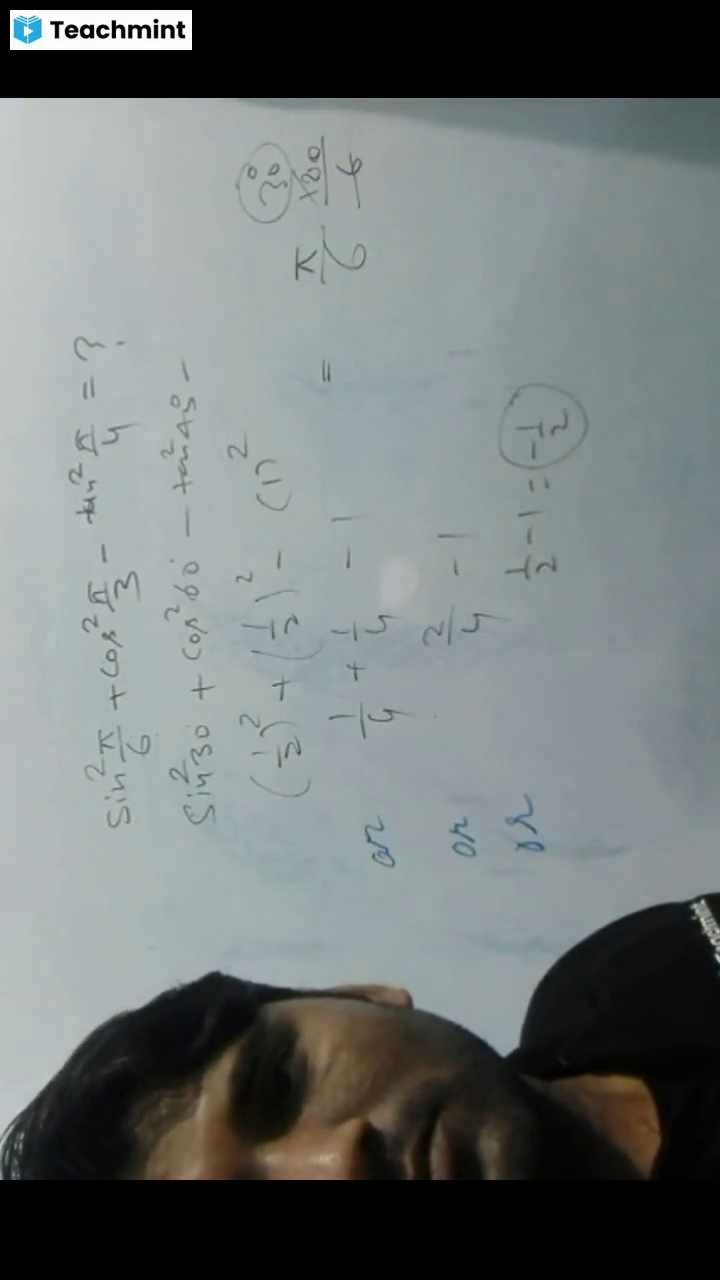 Teachmint
sin²π/6 + cos²π/3 - tan²π/4 = ?
Sin²30° + cos²60° - tan²45° -
(1/2)² + (1/2)² - (1)²
or 1/4 + 1/4 - 1 =
or 2/4 - 1
or 1/2 - 1 = -1/2
30°
π/6